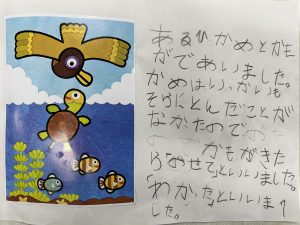 あるひかめとかも
がであいました。
かめはいっかいも
そらにとんだことが
なかったので
かもがきた
らおせて」といいました。
「わかった」といいま
した。